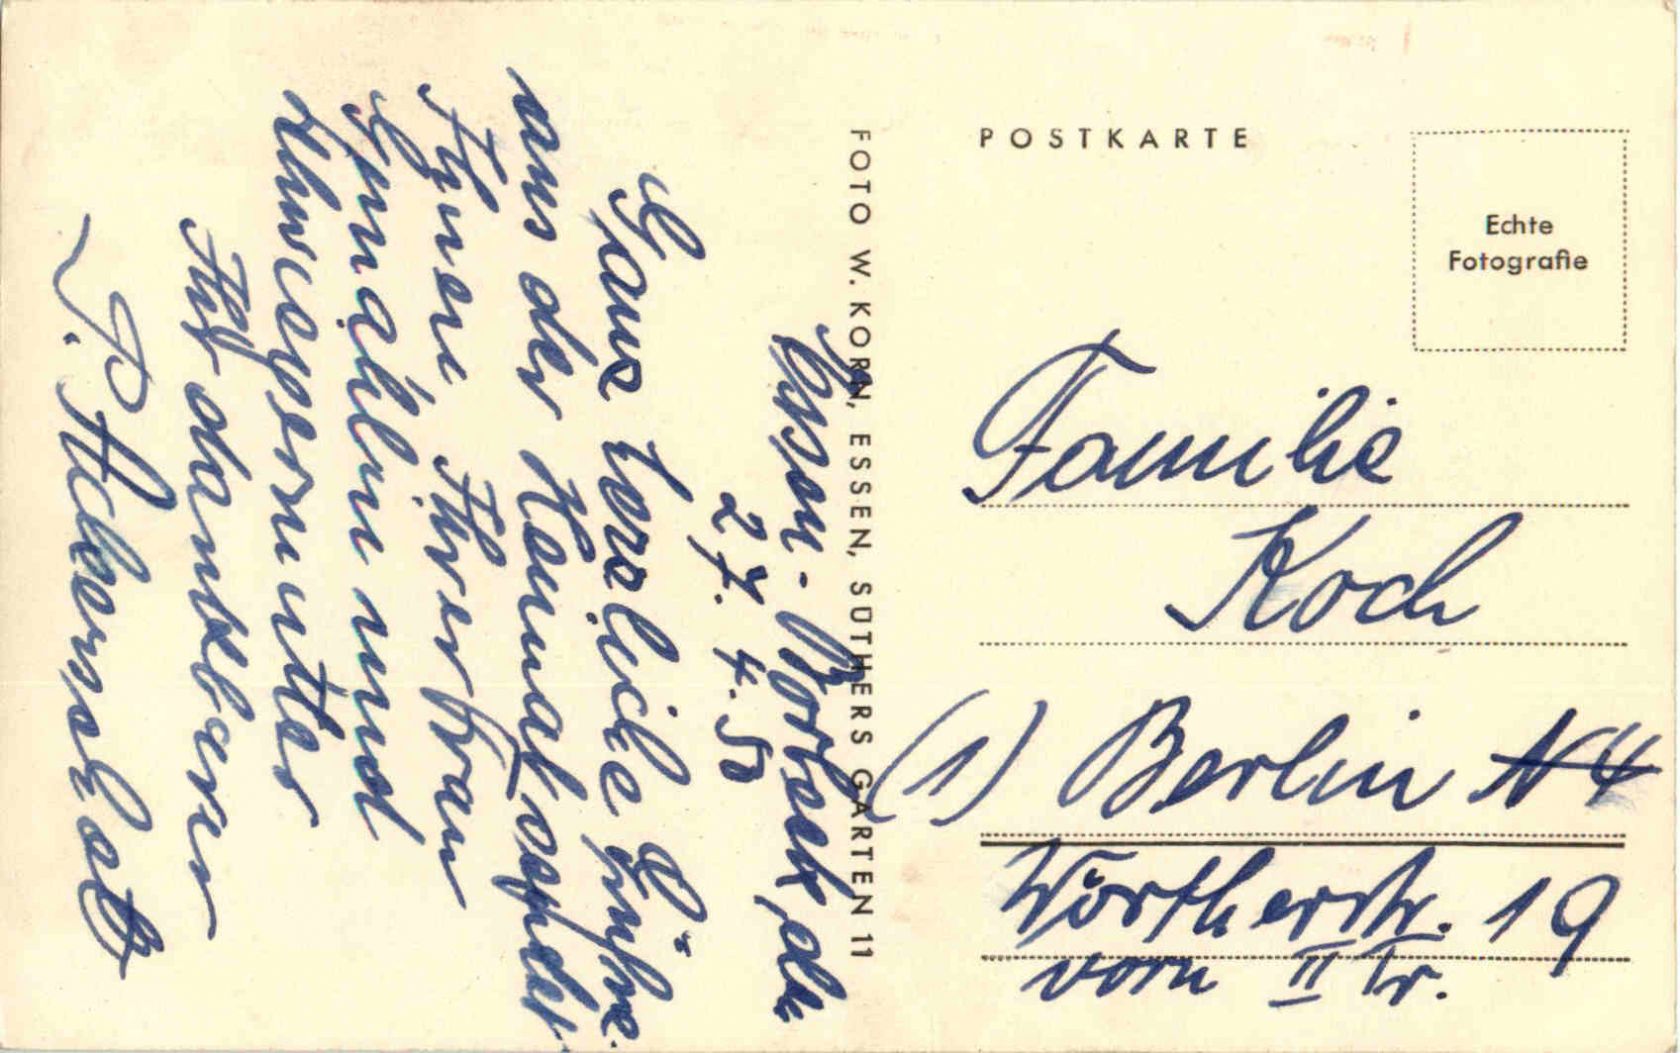 Essen-Borbeck, den
27.4.50
Ganz herzliche Grüße
aus der Heimat sendet
Ihnen, Ihrer Frau
Gemahlin und
Schwiegermutter
Ihr dankbarer
P.
FOTO W. KORN, ESSEN, SÜTHERS GARTEN 11
POSTKARTE
Echte
Fotografie
Familie
Koch
(1) Berlin N4
Wörtherstr. 19
vorn II Tr.